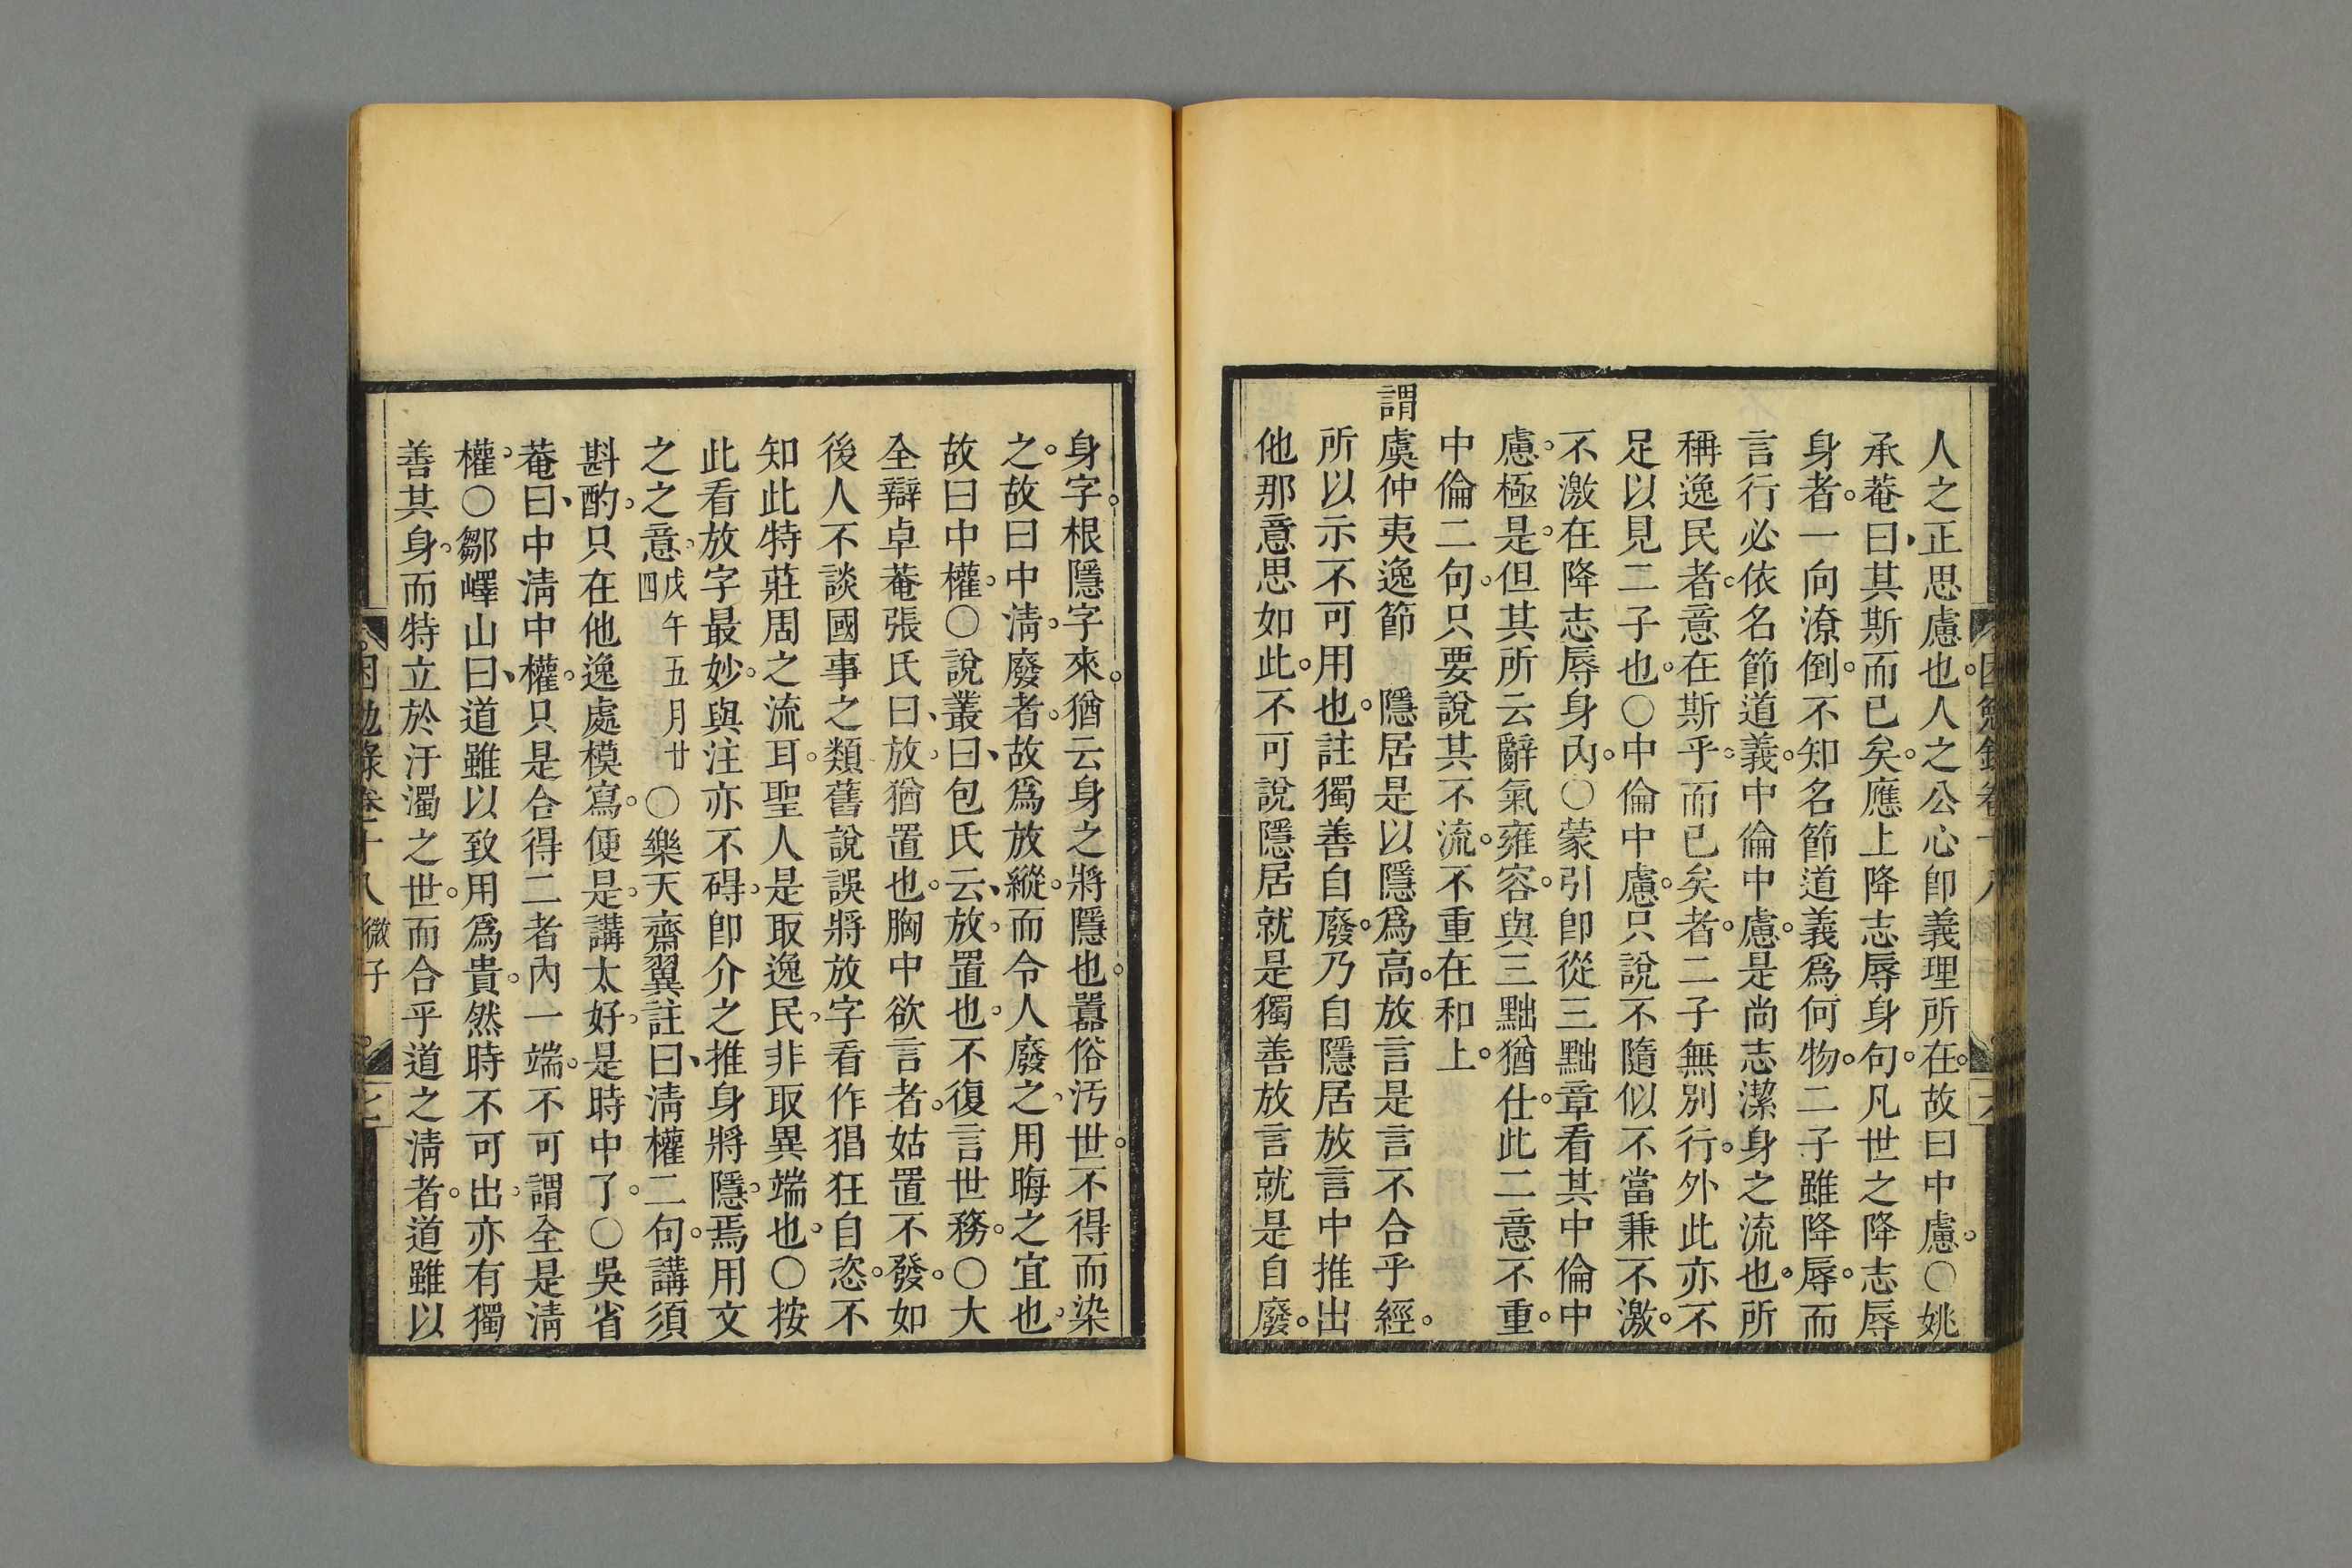 人之正思慮也。人之公心卽義理所在。故曰中慮。○姚
承菴曰、其斯而已矣。應上降志辱身句。凡世之降志辱
身者。一向潦倒。不知名節道義爲何物。二子雖降辱。而
言行必依名節道義。中倫中慮。是尚志潔身之流也。所
稱逸民者。意在斯乎。而已矣者。二子無別行。外此亦不
足以見二子也。○中倫中慮。只說不隨似不當兼不激。
不激在降志辱身內。○蒙引卽從三黜章看其中倫中
慮。極是。但其所云辭氣雍容。與三黜猶仕。此二意不重。
中倫二句。只要說其不流。不重在和上。
謂虞仲夷逸節　隱居是以隱爲高。放言是言不合乎經。
所以示不可用也。註獨善自廢。乃自隱居放言中推出
他那意思如此。不可說隱居就是獨善放言就是自廢。
身字。根隱字來。猶云身之將隱也。囂俗汚世。不得而染
之。故曰中淸。廢者。故爲放縱。而令人廢之。用晦之宜也。
故曰中權。○說叢曰、包氏云、放。置也。不復言世務。○大
全辯卓菴張氏曰、放。猶置也。胸中欲言者。姑置不發。如
後人不談國事之類。舊說誤將放字看作猖狂自恣。不
知此特莊周之流耳。聖人是取逸民。非取異端也。○按
此看放字最妙。與注亦不碍。卽介之推身將隱。焉用文
之之意。戊午五月廿四○樂天齋翼註曰、淸權二句。講須
斟酌。只在他逸處模寫。便是。講太好。是時中了。○吳省
菴曰、中淸中權。只是合得二者內一端。不可謂全是淸
權。○鄒嶧山曰、道雖以致用爲貴。然時不可出。亦有獨
善其身。而特立於汙濁之世。而合乎道之淸者。道雖以
困勉錄卷十八　微子　七